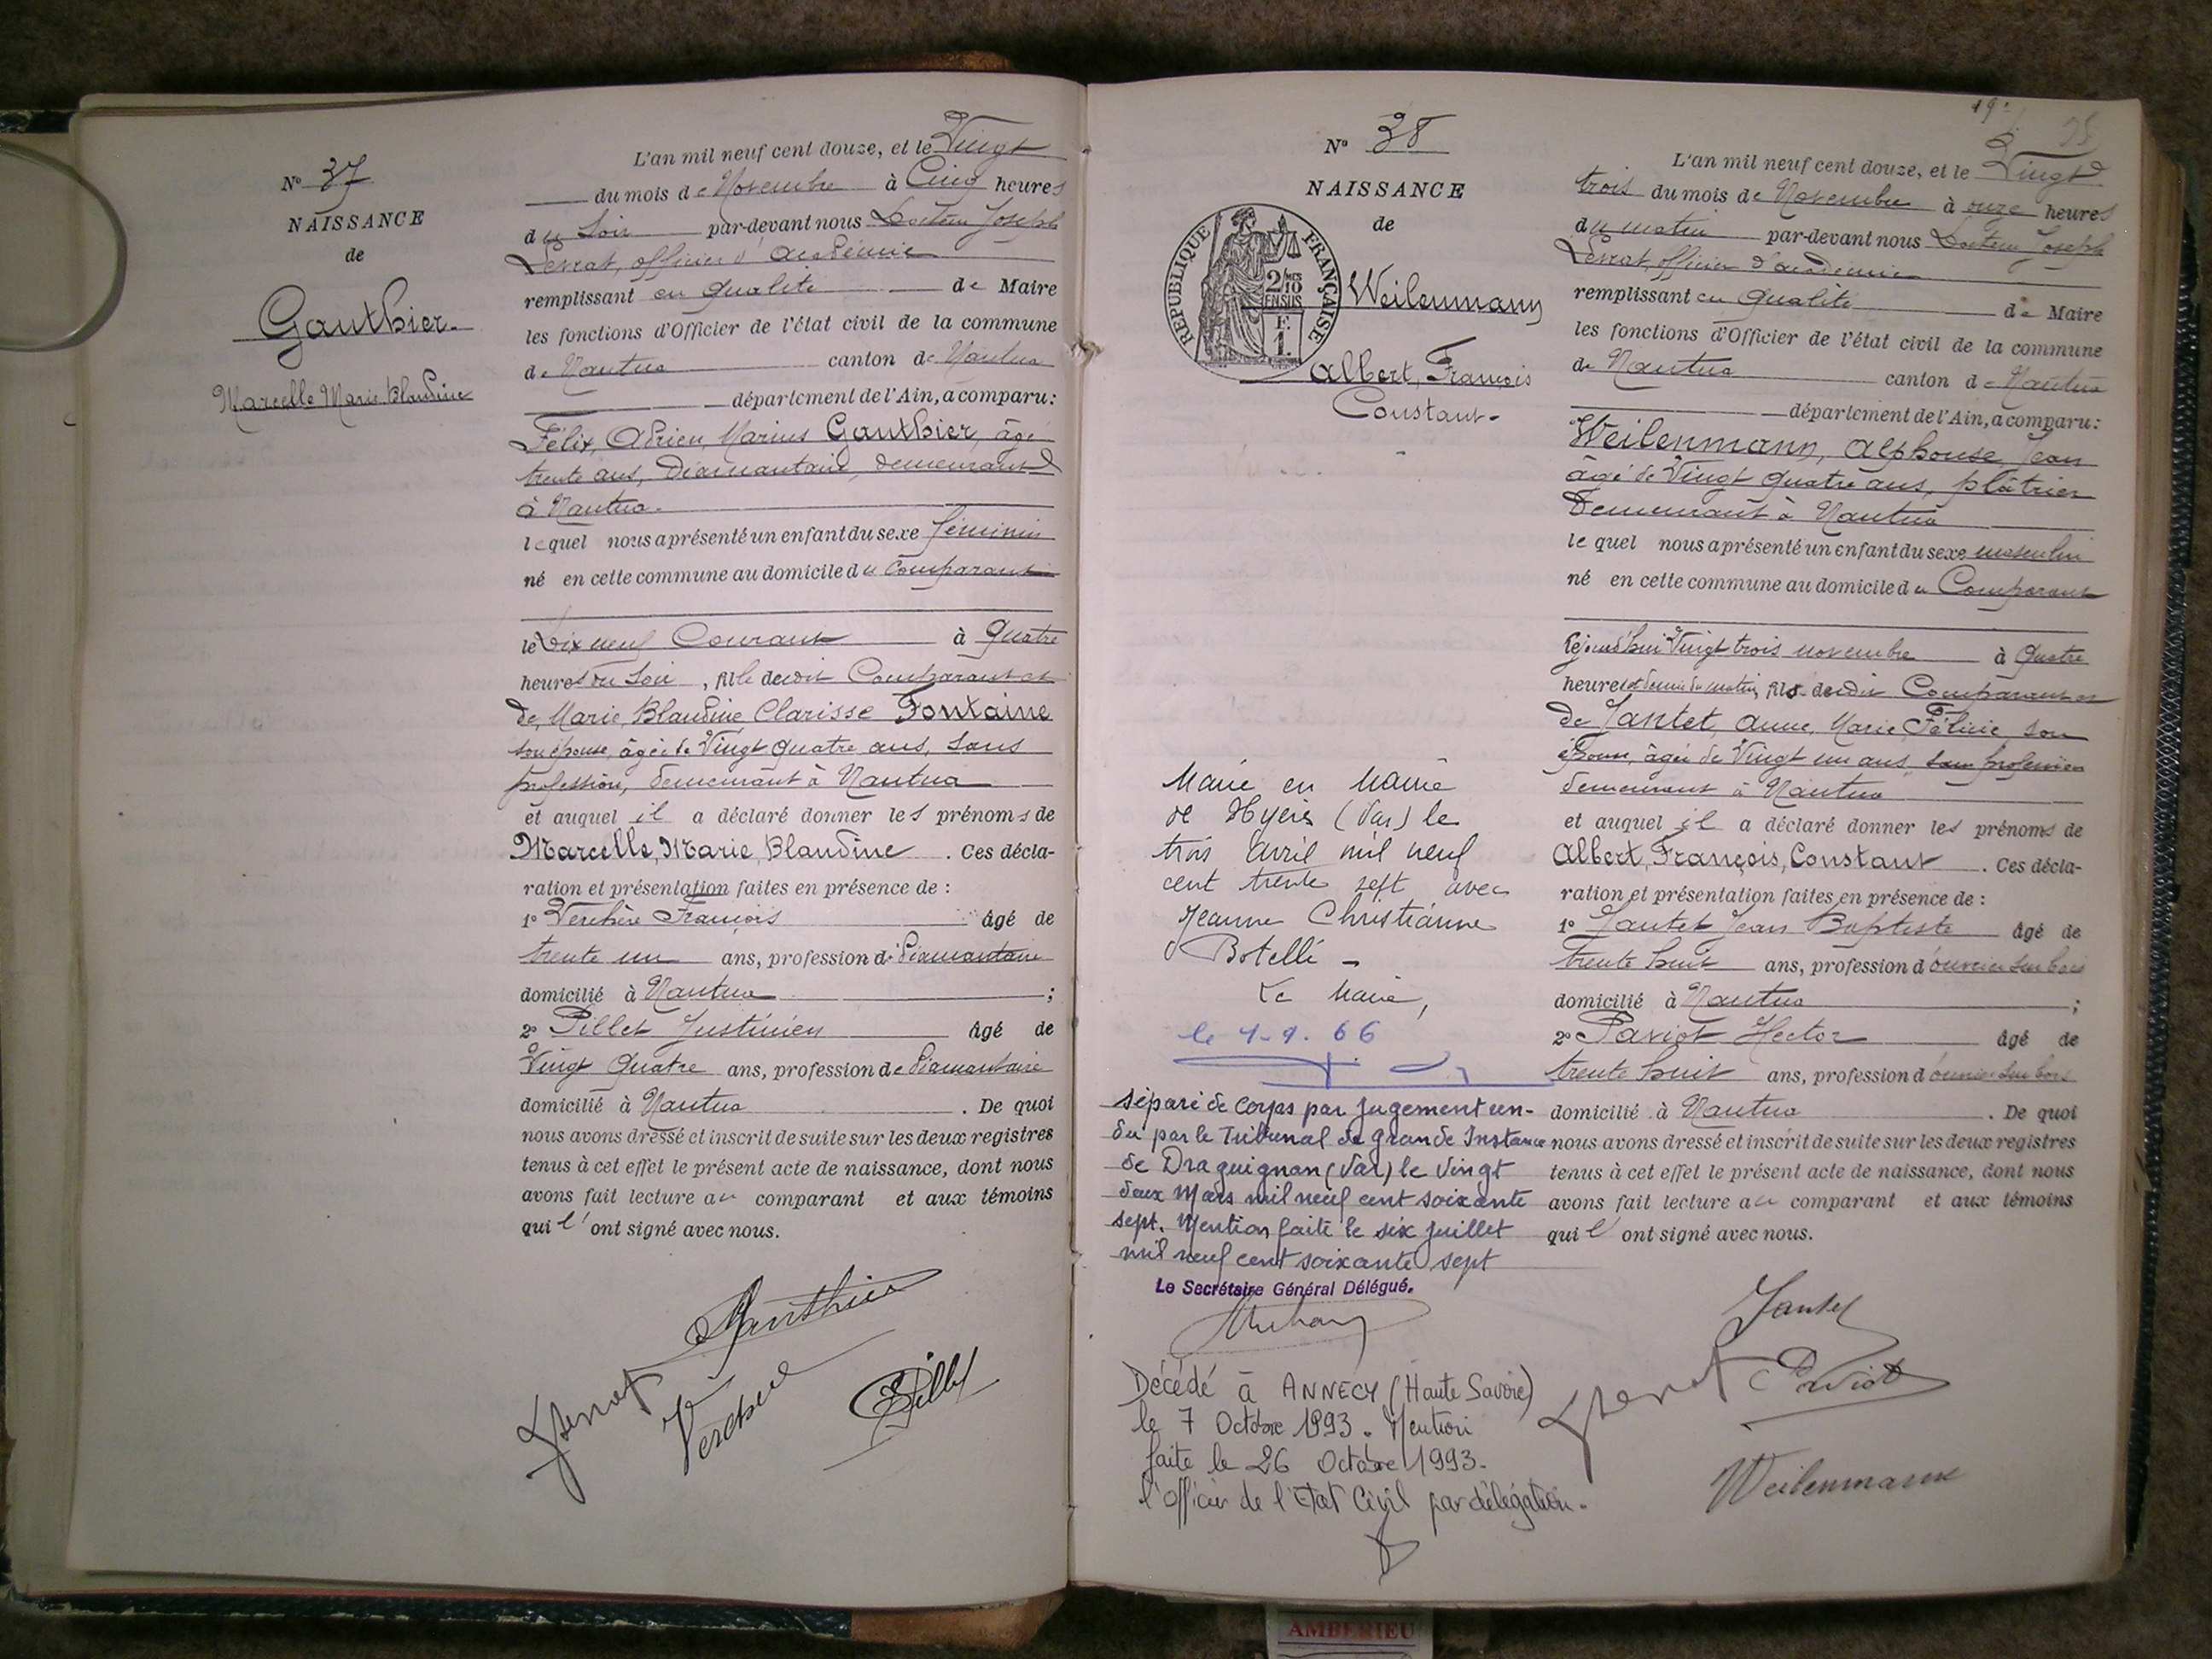 N° 37
NAISSANCE
de
Gauthier
Marcelle Marie Blandine
L'an mil neuf cent douze, et le Vingt
du mois de Novembre à Cinq heures
du Soir par-devant nous Docteur Joseph
Levrat, officier d'académie
remplissant en qualité de Maire
les fonctions d'Officier de l'état civil de la commune
de Nantua canton de Nantua
département de l'Ain, a comparu:
Félix, Adrien, Marius Gauthier, âgé
trente ans, Diamantaire, demeurant
à Nantua.
lequel nous a présenté un enfant du sexe féminin
né en cette commune au domicile du Comparant
le Dix neuf Courant à Quatre
heures du soir, fille du dit Comparant et
de Marie Blandine Clarisse Fontaine
son épouse, âgée de Vingt quatre ans, sans
profession, demeurant à Nantua
et auquel il a déclaré donner les prénoms de
Marcelle, Marie, Blandine. Ces décla-
ration et présentation faites en présence de :
1° Verchère François âgé de
trente un ans, profession de Diamantaire
domicilié à Nantua ;
2° Pillet Justinien âgé de
Vingt Quatre ans, profession de Diamantaire
domicilié à Nantua. De quoi
nous avons dressé et inscrit de suite sur les deux registres
tenus à cet effet le présent acte de naissance, dont nous
avons fait lecture au comparant et aux témoins
qui l'ont signé avec nous.
Gauthier
Levrat Verchère Pillet
19
N° 38
NAISSANCE
de
REPUBLIQUE FRANÇAISE
2/10
EN SUS
F.
1.
Weilenmann
Albert, François
Constant-
L'an mil neuf cent douze, et le Vingt
trois du mois de Novembre à onze heures
du matin par-devant nous Docteur Joseph
Levrat, officier d'académie
remplissant en qualité de Maire
les fonctions d'Officier de l'état civil de la commune
de Nantua canton de Nantua
département de l'Ain, a comparu:
Weilenmann, Alphonse Jean
âgé de Vingt quatre ans, plâtrier
Demeurant à Nantua
lequel nous a présenté un enfant du sexe masculin
né en cette commune au domicile du Comparant
Cejourd'hui Vingt trois novembre à Quatre
heures et demie du matin, fils du dit Comparant et
de Jantet, Anne, Marie Félicie, son
épouse, âgée de Vingt un ans, sans profession
demeurant à Nantua
et auquel il a déclaré donner les prénoms de
Albert, François, Constant. Ces décla-
ration et présentation faites en présence de :
1° Jantet Jean Baptiste âgé de
trente huit ans, profession d'ouvrier sur bois
domicilié à Nantua ;
2° Paviot Hector âgé de
trente huit ans, profession d'ouvrier sur bois
domicilié à Nantua. De quoi
nous avons dressé et inscrit de suite sur les deux registres
tenus à cet effet le présent acte de naissance, dont nous
avons fait lecture au comparant et aux témoins
qui l'ont signé avec nous.
Jantet
Levrat Paviot
Weilenmann
Marié en mairie
de Hyères (Var) le
trois avril mil neuf
cent trente sept avec
Jeanne Christianne
Botelli -
Le Maire,
séparé de corps par jugement ren-
du par le Tribunal de grande Instance
de Draguignan (Var) le Vingt
deux Mars mil neuf cent soixante
sept. Mention faite le six Juillet
mil neuf cent soixante sept
Le Secrétaire Général Délégué.
Décédé à ANNECY (Haute Savoie)
le 7 Octobre 1993. Mention
faite le 26 Octobre 1993.
l'officier de l'Etat Civil par délégation.
AMBERIEU